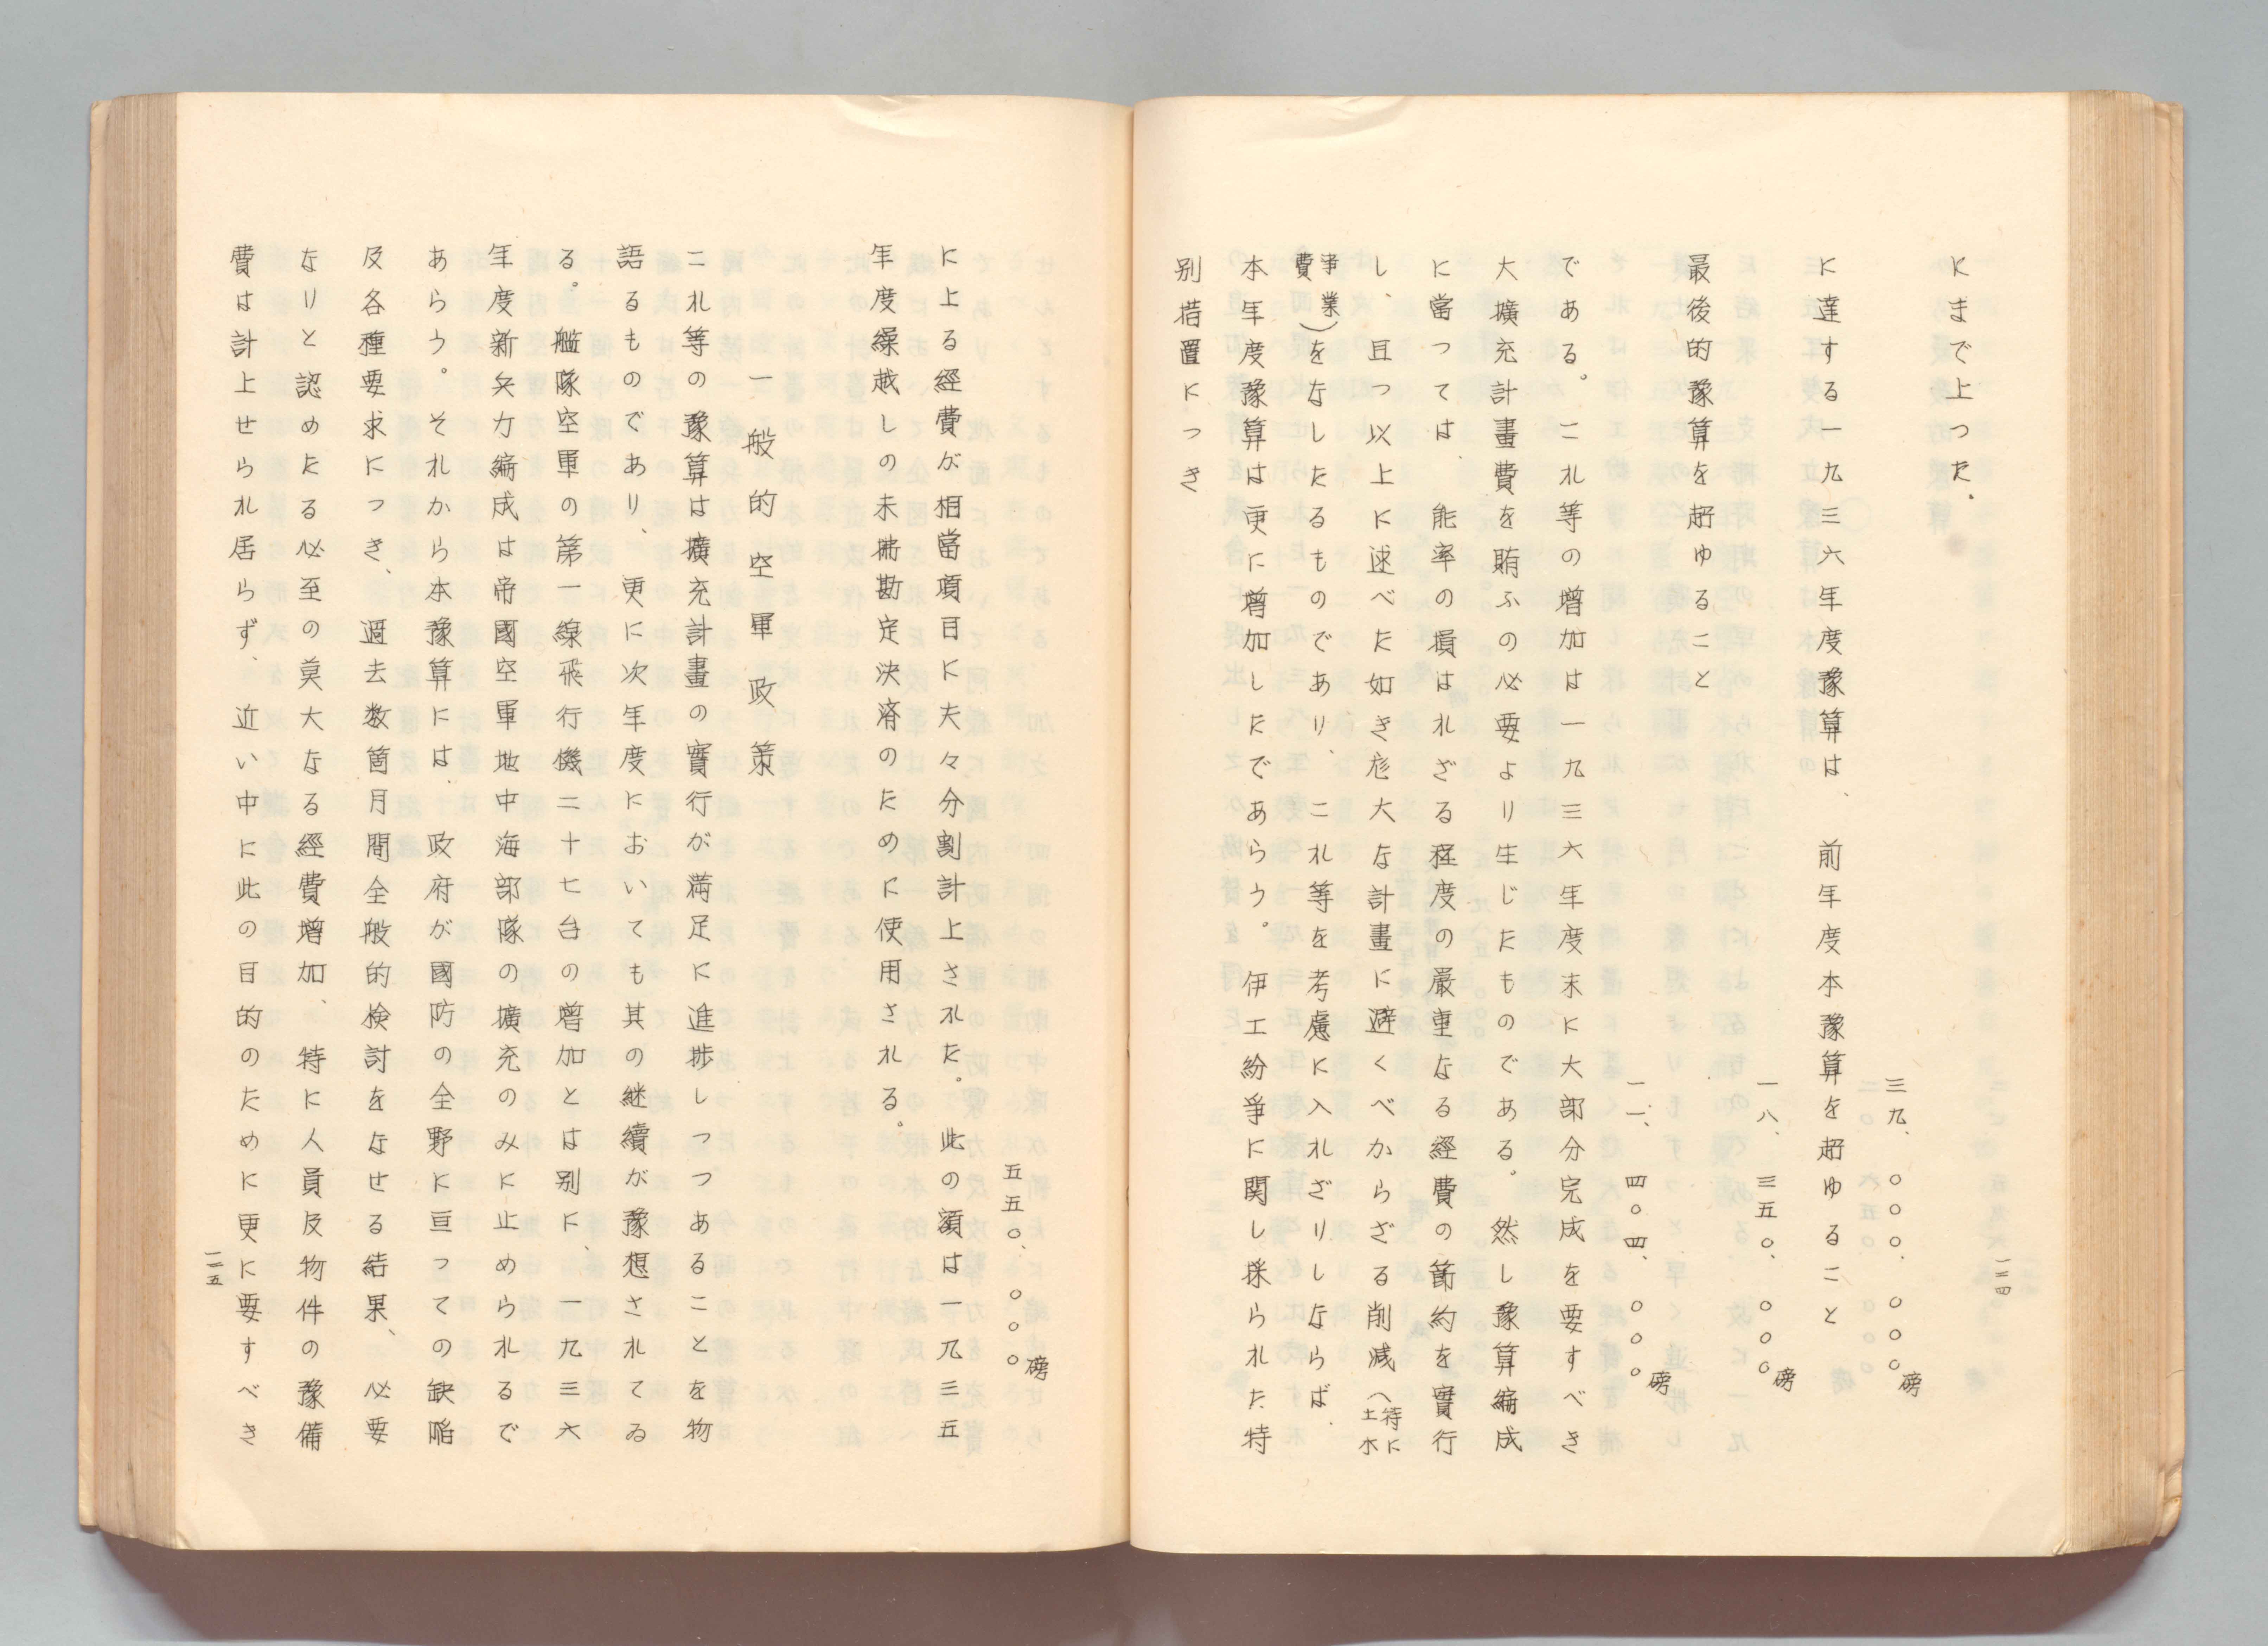 一二四
にまで上つた．
三九、〇〇〇．〇〇〇磅
に達する一九三六年度豫算は、前年度本豫算を超ゆること
一八、三五〇、〇〇〇磅
最後的豫算を超ゆること
一一、四〇四、〇〇〇磅
である。これ等の増加は一九三六年度末に大部分完成を要すべき
大擴充計畫費を賄ふの必要より生じたものである。然し豫算編成
に當つては、能率の損はれざる程度の嚴重なる經費の節約を實行
し、且つ以上に述べた如き厖大な計畫に避くべからざる削減（特に土木
事業費）をなしたるものであり、これ等を考慮に入れざりしならば、
本年度豫算は更に増加したであらう。伊エ紛爭に関し採られた特
別措置につき
五五〇、〇〇〇磅
に上る經費が相當項目に夫々分割計上された。此の額は一九三五
年度繰越しの未拂勘定決済のために使用される。
一般的空軍政策
これ等の豫算は擴充計畫の實行が満足に進捗しつつあることを物
語るものであり、更に次年度においても其の継續が豫想されてゐ
る。艦隊空軍の第一線飛行機二十七台の増加とは別に、一九三六
年度新兵力編成は帝國空軍地中海部隊の擴充のみに止められるで
あらう。それから本豫算には、政府が國防の全野に亘つての缺陥
及各種要求につき、過去数箇月間全般的検討をなせる結果、必要
なりと認めたる必至の莫大なる經費増加、特に人員及物件の豫備
費は計上せられ居らず、近い中に此の目的のために更に要すべき
一二五